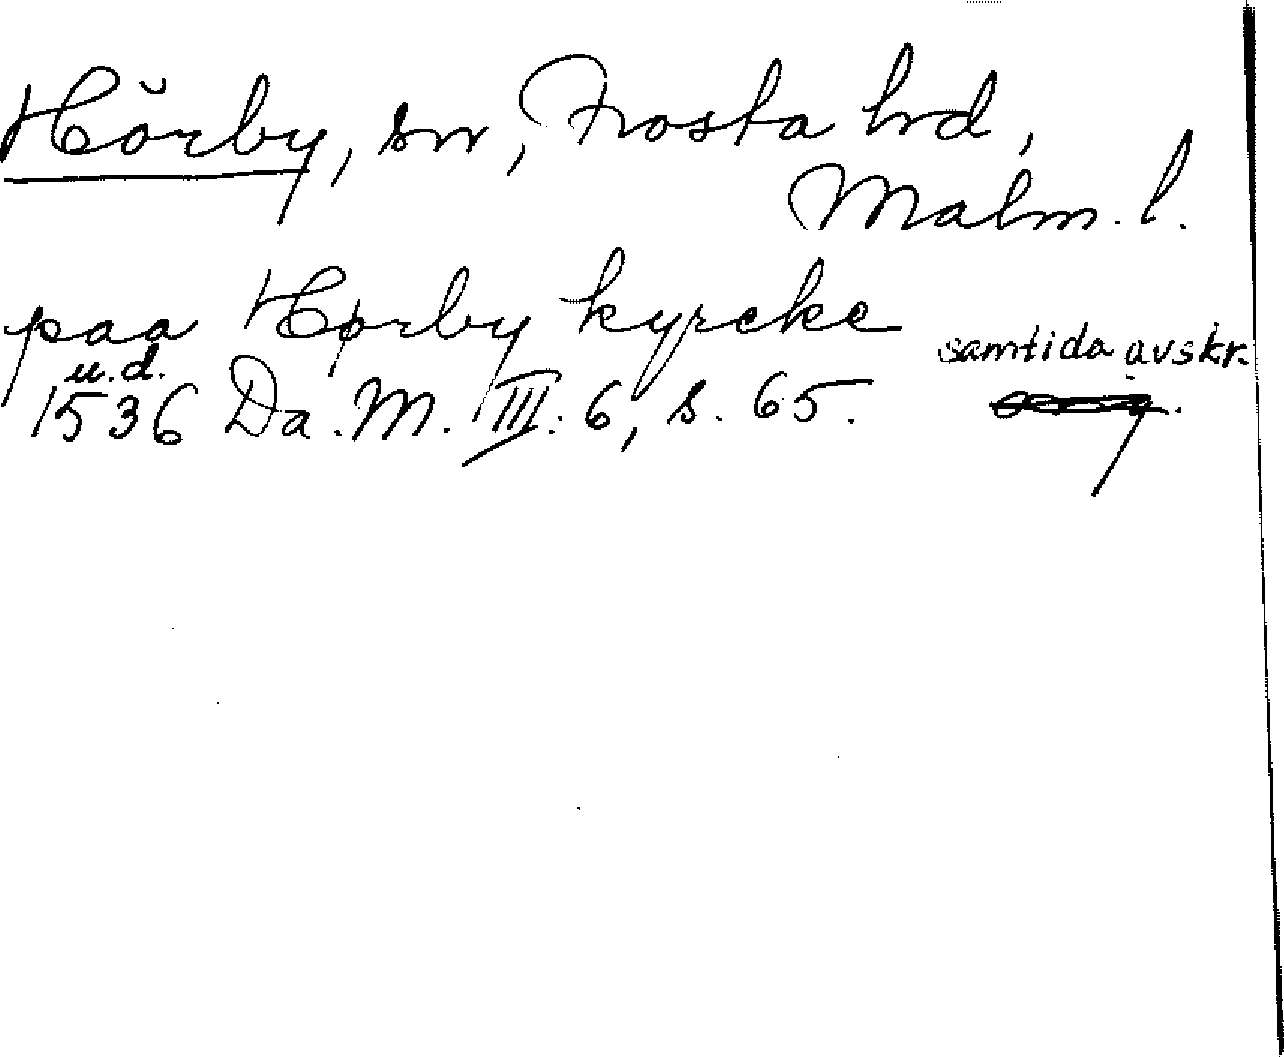 Hörby, sn, Frosta hd,
Malm. l.
paa Hørby kyrcke
samtida avskr.
u.d.
1536 Da. M. III: 6, s. 65.